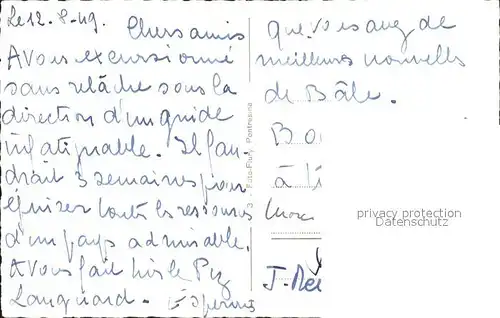 Le 12. 8-49.
Chers amis
Avons excursionné
sans relâche sous la
direction d'un guide
infatiguable. Il fau-
drait 3 semaines pour
épuiser toutes les ressources
d'un pays admirable.
Avons fait hier le Piz
Languard. Espérons
que vous avez de
meilleures nouvelles
de Bâle.
Foto-Flury, Pontresina
privacy protection
Datenschutz